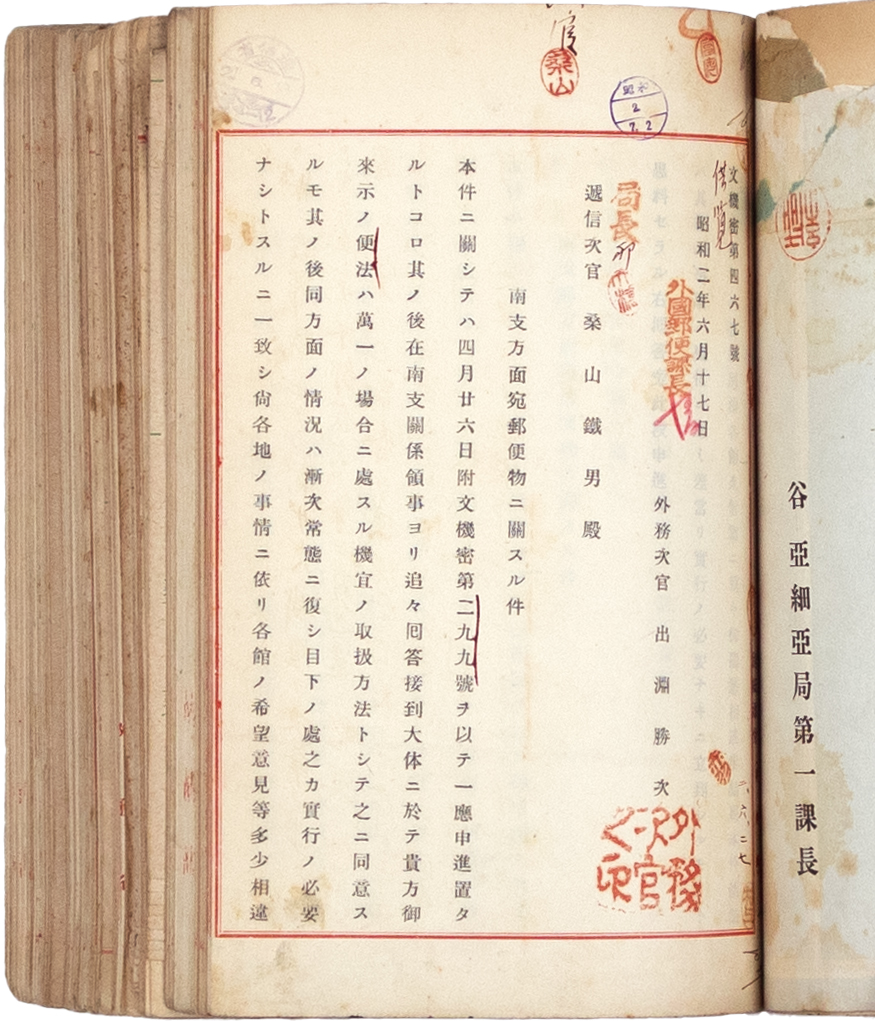 谷 亞細亞局第一課長
文機密第四六七號
供覽
昭和二年六月十七日
外國郵便課長
外務次官 出淵勝次
外務次官之印
局長
遞信次官 桑山鐵男殿
桑山
昭和
2
7.2
南支方面宛郵便物ニ關スル件
本件ニ關シテハ四月廿六日附文機密第二九九號ヲ以テ一應申進置タ
ルトコロ其ノ後在南支關係領事ヨリ追々囘答接到大体ニ於テ貴方御
來示ノ便法ハ萬一ノ場合ニ處スル機宜ノ取扱方法トシテ之ニ同意ス
ルモ其ノ後同方面ノ情況ハ漸次常態ニ復シ目下ノ處之カ實行ノ必要
ナシトスルニ一致シ尙各地ノ事情ニ依リ各館ノ希望意見等多少相違